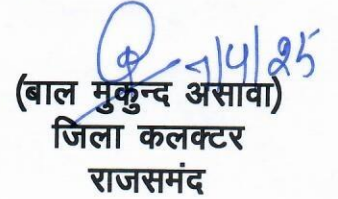 7/4/25
(बाल मुकुन्द असावा)
जिला कलक्टर
राजसमंद